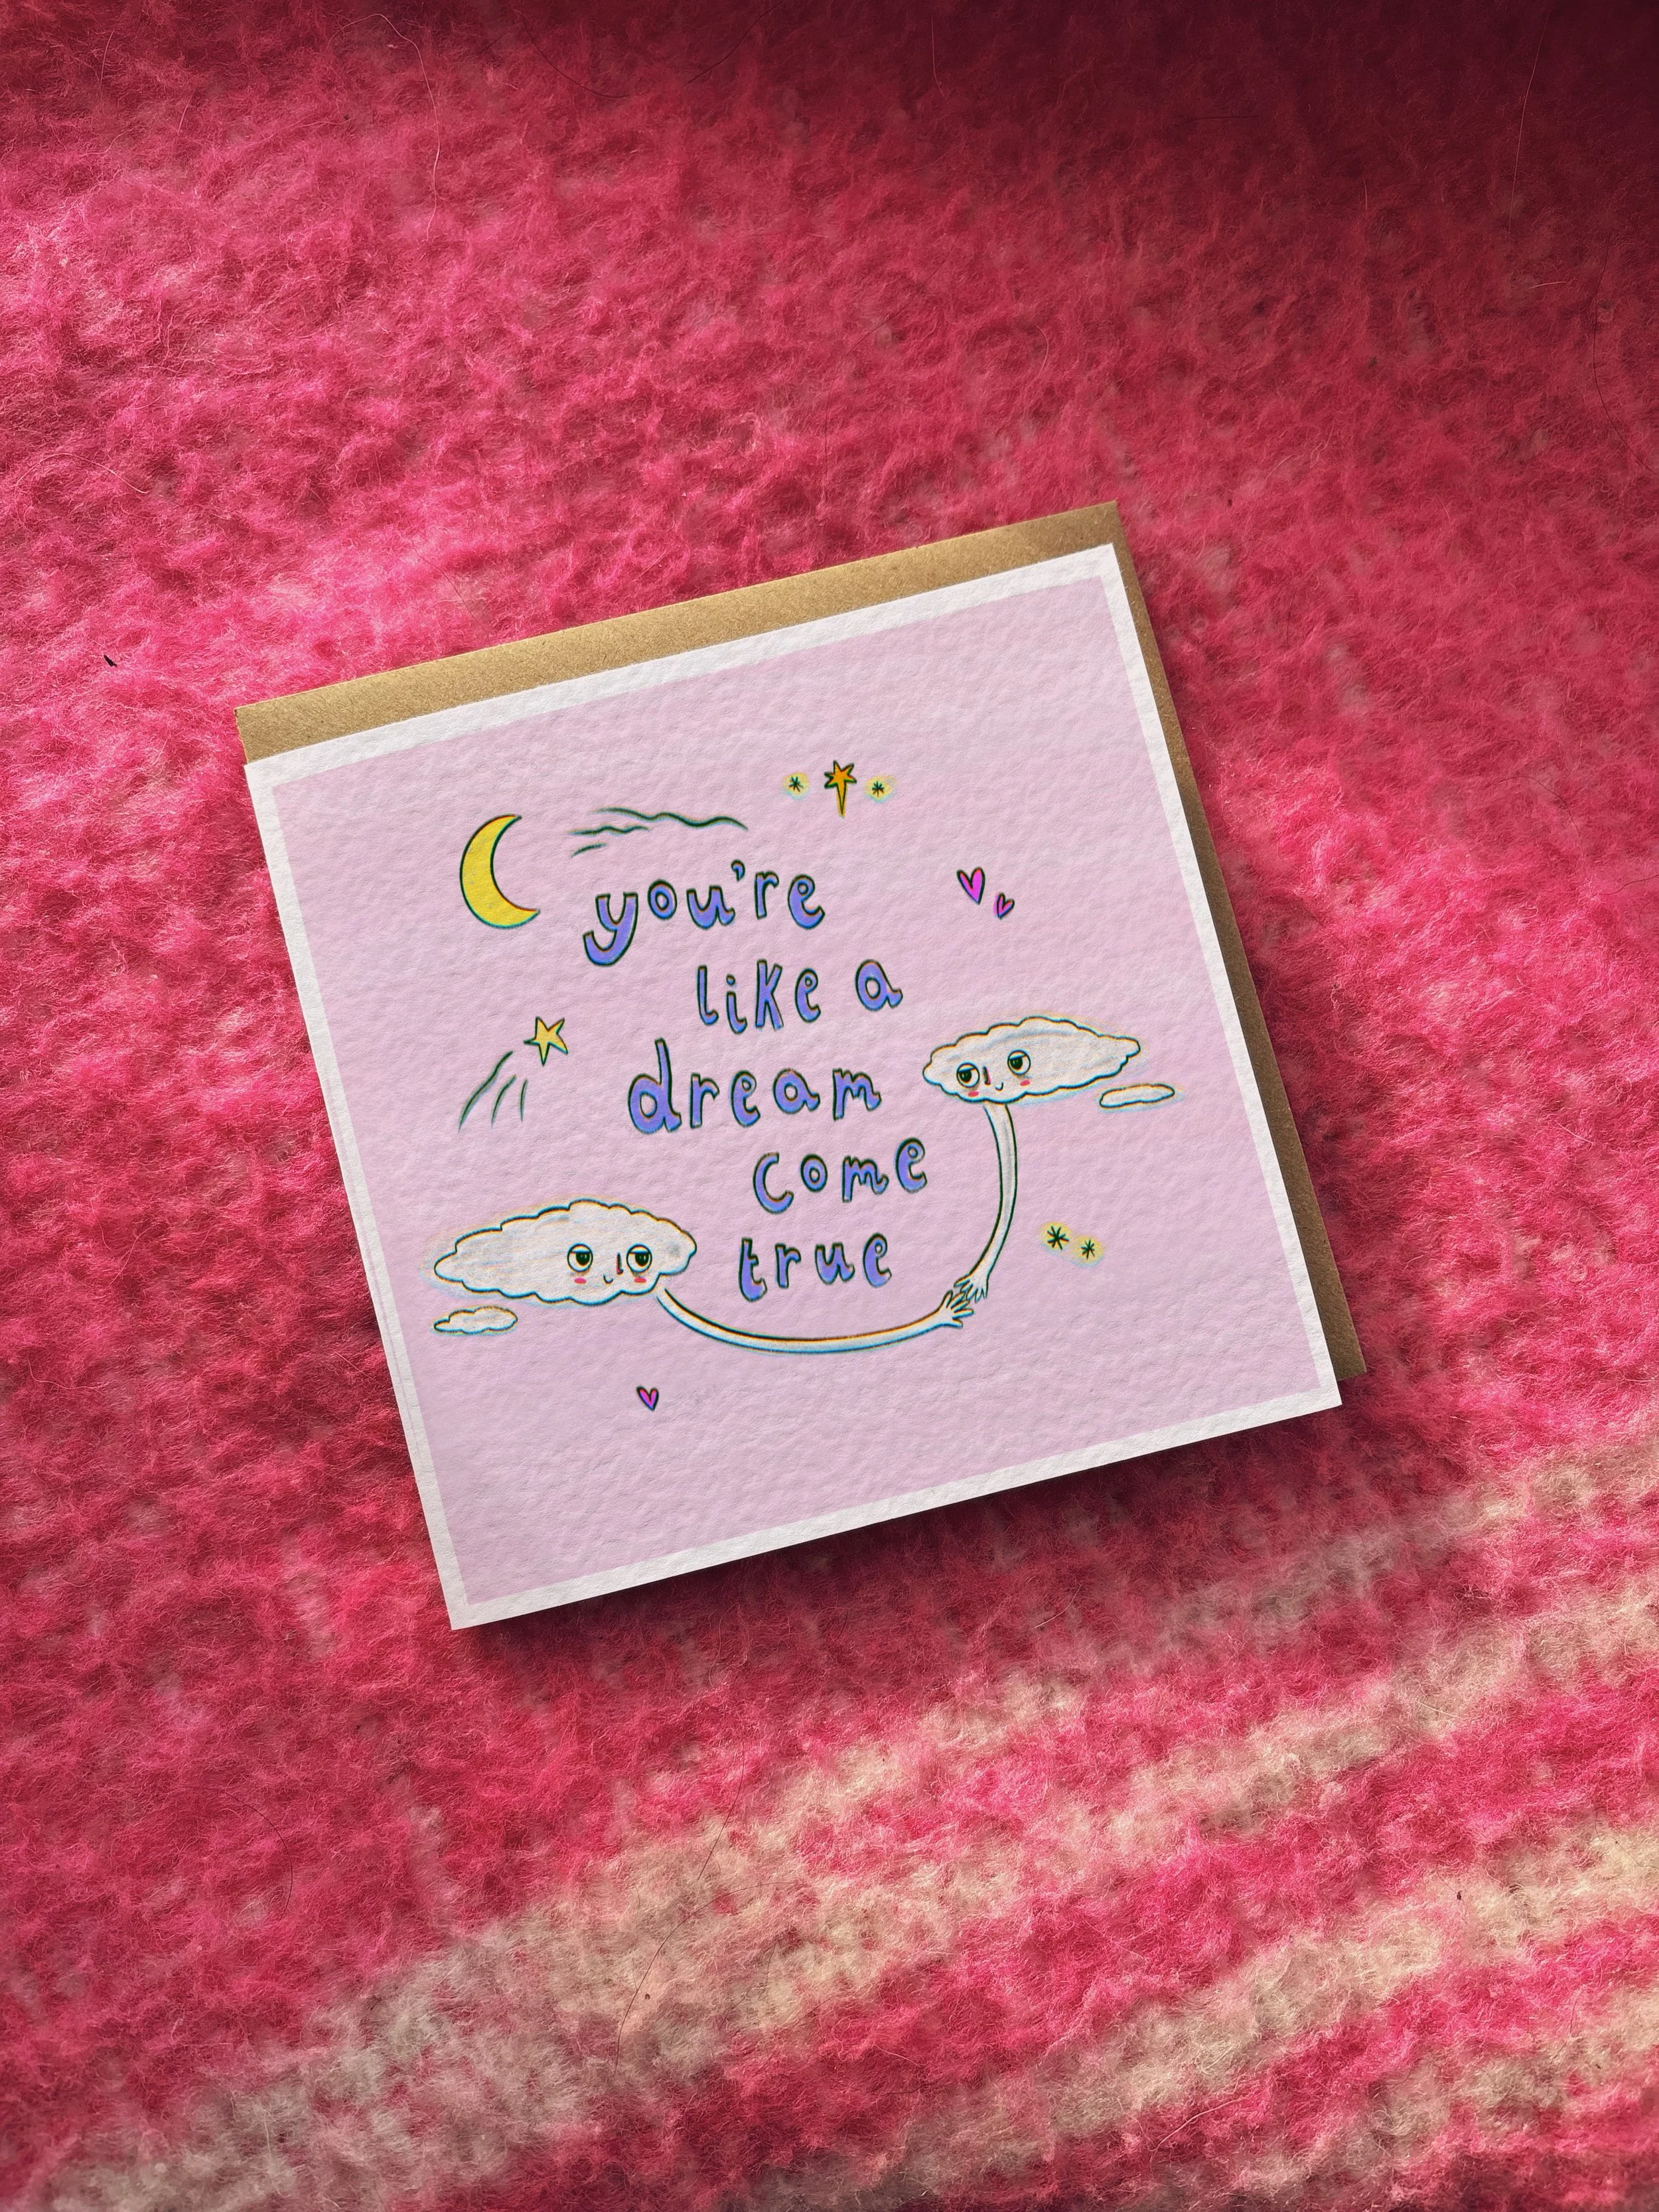 you're
like a
dream
come
true